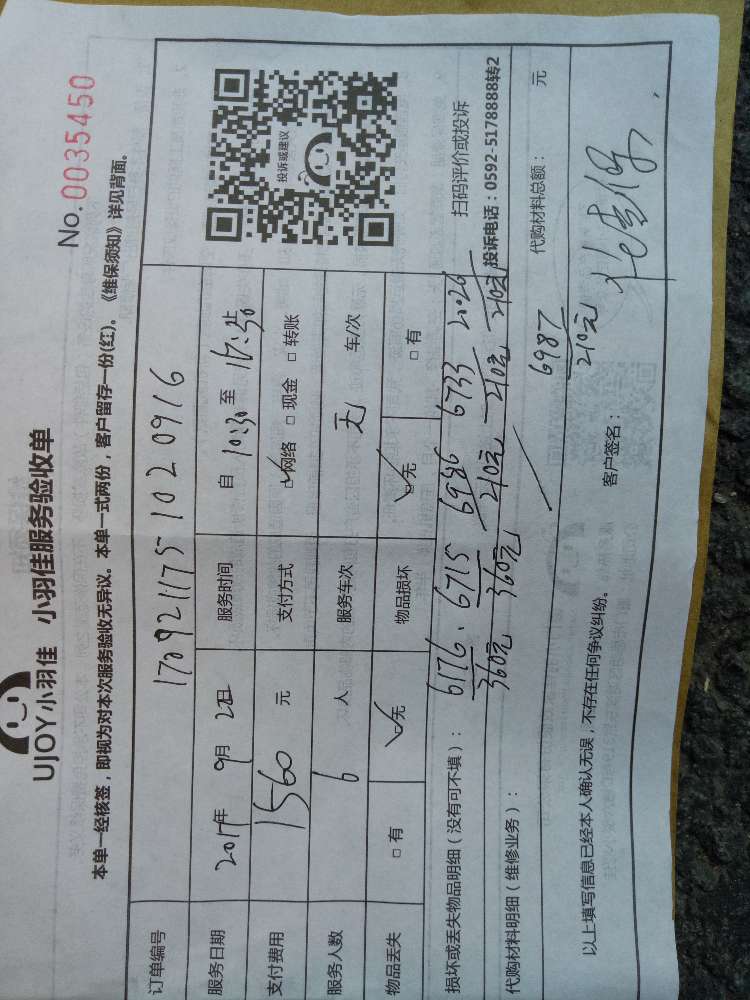 UJOY小羽佳 小羽佳服务验收单
No.0035450
本单一经核签，即视为对本次服务验收无异议。本单一式两份，客户留存一份(红)。《维保须知》详见背面。
订单编号 1709211751020916
服务日期 2017年 9月 日 服务时间 自 10:30 至 16:30 止
支付费用 1560 元 支付方式 ☑网络 □现金 □转账
服务人数 6 人 服务车次 无 车/次
物品丢失 □有 ☑无 物品损坏 ☑无 □有
投诉或建议
扫码评价或投诉
投诉电话：0592-5178888转2
损坏或丢失物品明细（没有可不填）： 6176、6715 6986 6733 2026
360元 360元 210元 210元 210元
代购材料明细（维修业务）： 代购材料总额： 元
6987
210元
以上填写信息已经本人确认无误，不存在任何争议纠纷。 客户签名：